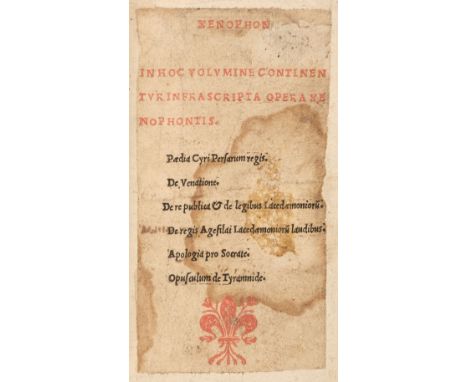 XENOPHON
IN HOC VOLVMINE CONTINEN
TVR INFRASCRIPTA OPERA XE
NOPHONTIS.
Pædia Cyri Persarum regis.
De Venatione.
De re publica & de legibus Lacedæmoniorũ.
De regis Agesilai Lacedæmoniorũ laudibus.
Apologia pro Socrate.
Opusculum de Tyrannide.